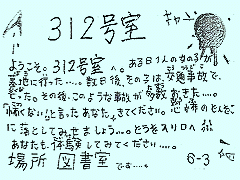 312号室
キャー
ようこそ。312号室へ。ある日1人の女の子が
墓地に行った‥‥。数日後、その子は、交通事故で、
亡った。その後、このような事故が多数おきた‥‥。
「怖くない。」と言ったあなた。きてください。恐怖のどんぞこ
に落としてみせましょう‥‥。どうぞ入り口へ
あなたも、体験してみてください‥‥。
場所 図書室です‥‥。 6-3